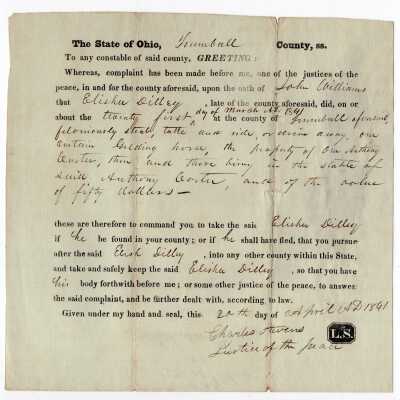 The State of Ohio, Trumball County, ss.
To any constable of said county, GREETING:
Whereas, complaint has been made before me, one of the justices of the
peace, in and for the county aforesaid, upon the oath of John Williams
that Elisha Dilley, late of the county aforesaid, did, on or
about the twenty first day of March AD. 1841 at the county of Trumball aforesaid,
feloniously steal, take and ride, or drive away, one
certain Gelding horse, the property of one Anthony
Carter, then and there being in the state of
said Anthony Carter, and of the value
of fifty dollars —
these are therefore to command you to take the said Elisha Dilley
if he be found in your county; or if he shall have fled, that you pursue
after the said Elish Dilley, into any other county within this State,
and take and safely keep the said Elisha Dilley, so that you have
his body forthwith before me; or some other justice of the peace, to answer
the said complaint, and be further dealt with, according to law.
Given under my hand and seal, this 20th day of April AD 1841
Charles Stevens L.S.
Justice of the peace